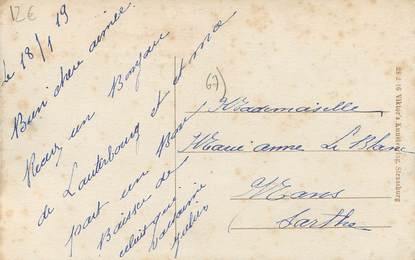 12€
Le 18/1 19
Bien chere aimée
Recois un Bonjour
de Lauterbourg et et ma
part un Bon
Baisser de
celuit qui
Julien
67
Mademoiselle
Marie anne Le Blanc
Mans
Sarthe
Viktor's Kunstverlag, Strassburg